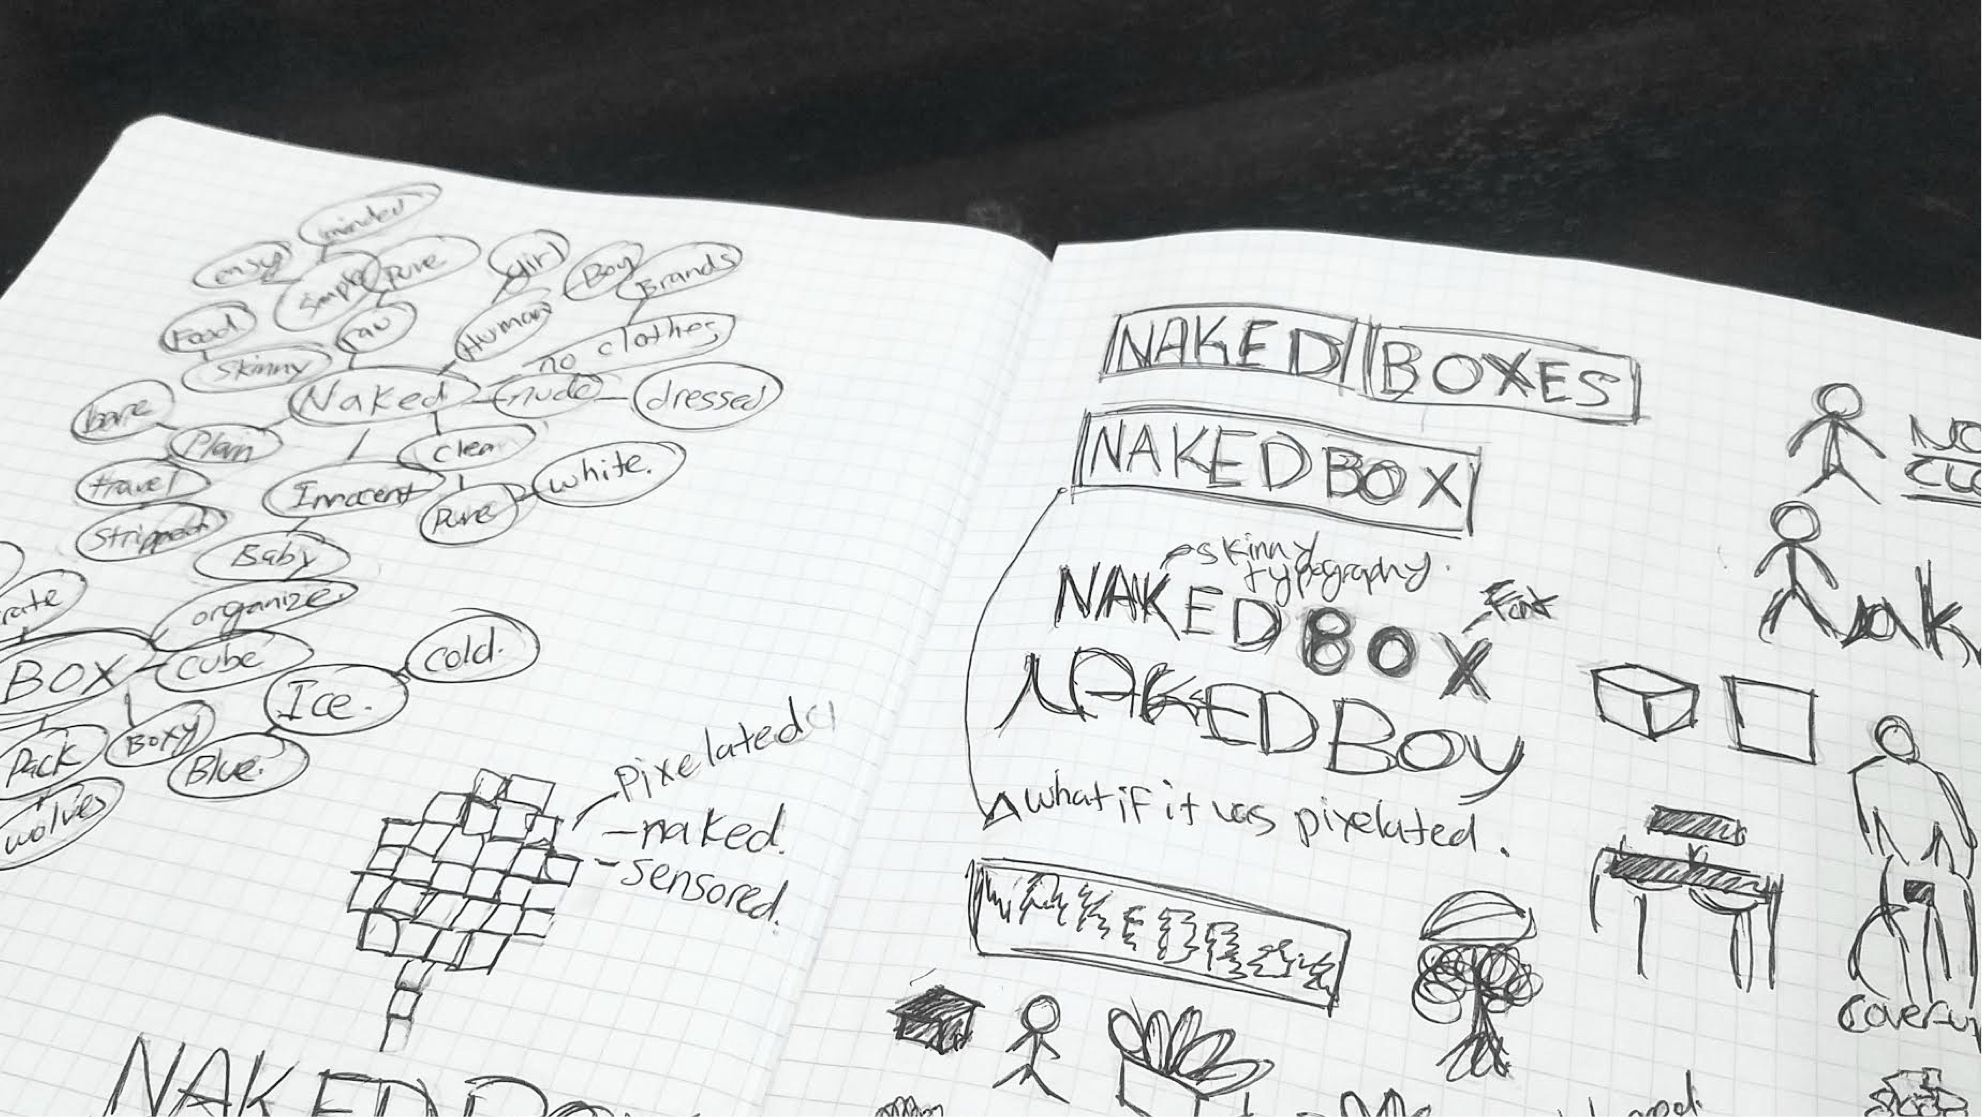 minded
easy
simple
Pure
girl
Boy
Brands
Food
raw
Human
no clothes
Skinny
Naked
nude
dressed
bare
Plain
clean
travel
Innocent
white.
Pure
Stripped
Baby
organize.
BOX
cube
cold.
Ice.
Pack
Boxy
Blue.
wolves
Pixelated
-naked.
-sensored.
NAKED BOX
NAKED BOXES
NAKED BOX
skinny
typography.
NAKED BOX
Font
NAKED BOY
what if it was pixelated.
NAKED BOX
NO
CLO